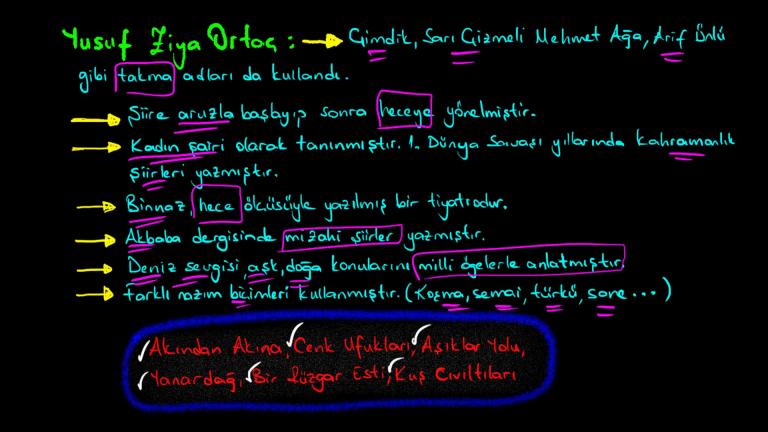 Yusuf Ziya Ortaç: → Çimdik, Sarı Çizmeli Mehmet Ağa, Arif Ünlü
gibi takma adları da kullandı.
→ Şiire aruzla başlayıp sonra heceye yönelmiştir.
→ Kadın şairi olarak tanınmıştır. 1. Dünya Savaşı yıllarında kahramanlık
şiirleri yazmıştır.
→ Binnaz, hece ölçüsüyle yazılmış bir tiyatrodur.
→ Akbaba dergisinde mizahi şiirler yazmıştır.
→ Deniz sevgisi, aşk, doğa konularını milli ögelerle anlatmıştır.
→ Farklı nazım biçimleri kullanmıştır. (Koşma, semai, türkü, sone...)
✓Akından Akına, ✓Cenk Ufukları, ✓Aşıklar Yolu,
✓Yanardağ, ✓Bir Rüzgar Esti, ✓Kuş Cıvıltıları